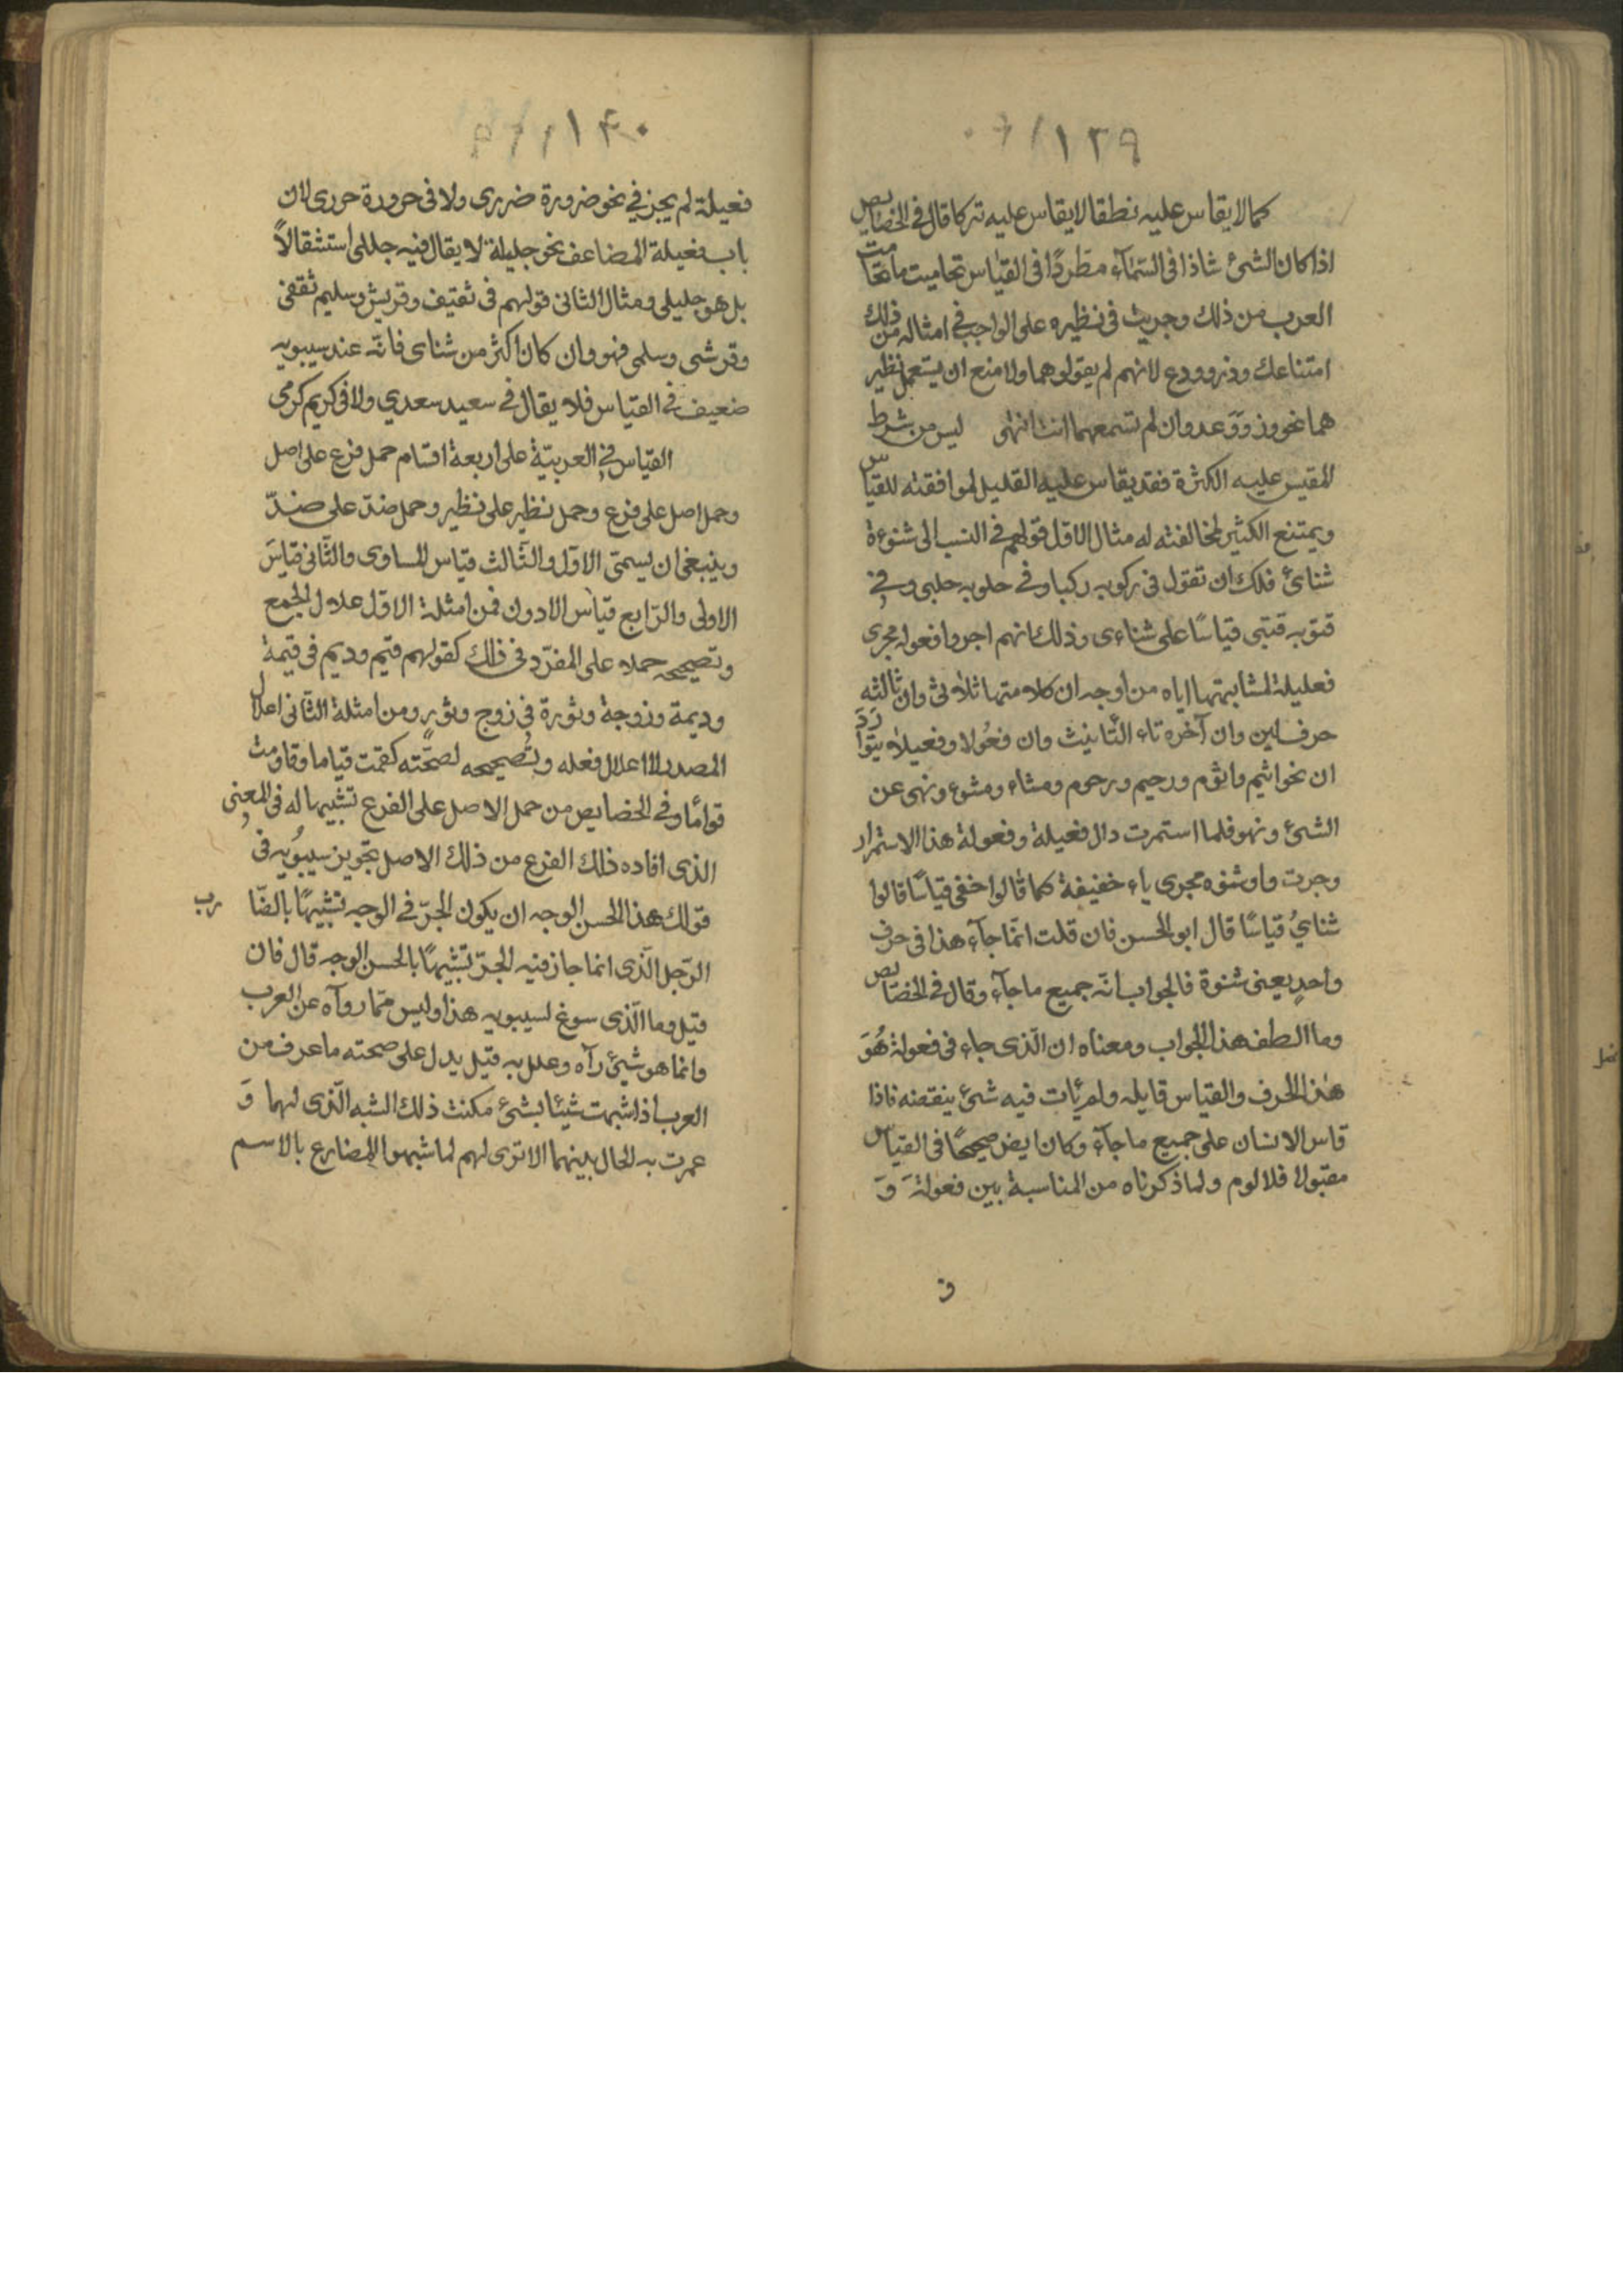 ١٣٩
كما لا يقاس عليه نطقا لا يقاس عليه تركا قال فى الخصايص
اذا كان الشئ شاذا فى السّمآء مطّردًا فى القياس تحاميت ما تحامت
العرب من ذلك وجريت فى نظيره على الواجب فى امثاله من ذلك
امتناعك وذر وودع لانهم لم يقولوهما ولا منع ان يستعمل نظير
هما نحو وزَوَ وَعد وان لم تسمعهما انت انتهى ليس من شرط
المقيس عليه الكثرة فقد يقاس عليه القليل لموافقته للقياس
ويمتنع الكثير لمخالفته له مثال الاوّل قولهم فى النسب الى شنوءة
شنائ فلك ان تقول فى ركوبه ركبا وفى حلوبه حلبى وفى
قتوبه قتبى قياسًا على شناءى وذلك انهم اجروا فعوله مجرى
فعليلة لمشابهتها اياه من اوجه ان كلا منها ثلاثى وان ثالثه
حرف لين وان آخره تاء التّانيث وان فعُولا وفعيلا يتواردَ
ان نحو اثيم واثوم ورحيم ورحوم ومشاء ومشوء ونهى عن
الشئ ونهو فلما استمرت دال فعيلة وفعولة هذا الاستمرار
وجرت واو شنوه مجرى ياء خفيفة كما قالوا خفى قياسًا قالوا
شنائُ قياسًا قال ابو الحسن فان قلت انّما جآء هذا فى حرف
واحدٍ يعنى شنوة فالجواب انّه جميع ما جآء وقال فى الخصايص
وما الطف هذا الجواب ومعناه ان الّذى جاء فى فعولة هُوَ
هٰذا الحرف والقياس قابله ولم يُات فيه شئ ينقضه فاذا
قاس الانسان على جميع ما جآء وكان ايض صحيحًا فى القياس
مقبولا فلا لوم ولما ذكرناه من المناسبة بين فعولةَ وَ
ف
١۴٠
فعيلة لم يجز فى نحو ضرورة ضررى ولا فى حرورة حررى لان
باب فعيلة المضاعف نحو جليلة لا يقال فيه جللى استثقالاً
بل هو جليلى ومثال الثانى قولهم فى ثقيف وقريش وسليم ثقفى
وقرشى وسلمى فهو وان كان اكثر من شناى فانّه عند سيبويه
ضعيف فى القياس فلا يقال فى سعيد سعدي ولا فى كريم كرمى
القياس فى العربيّة على اربعة اقسام حمل فرع على اصل
وحمل اصل على فرع وحمل نظير على نظير وحمل ضدّ على ضدّ
وينبغى ان يسمّى الاوّل والثّالث قياس المساوى والثّانى قياسَ
الاولى والرّابع قياس الادون فمن امثلة الاوّل علال الجمع
وتصحيحه حملا على المفرد فى ذلك كقولهم قيم وديم فى قيمة
وديمة وزوجة وثورة فى زوج وثور ومن امثلة الثّانى اعلال
المصدر لا اعلال فعله وتصحيحه لصحّته كقمت قياما وقاومت
قوامًا وفى الخصايص من حمل الاصل على الفرع تشبيها له فى المعنى
الذى افاده ذلك الفرع من ذلك الاصل تجويز سيبُويه فى
قولك هذا الحسن الوجه ان يكون الجرّ فى الوجه تشبيهًا بالضّارب
الرّجل الّذى انما جاز فيه الجرّ تشبيهًا بالحسن الوجه قال فان
قيل وما الّذى سوغ لسيبويه هذا وليس ممّا روآه عن العرب
وانما هو شيئ رآه وعلل به قيل يدل على صحته ما عرف من
العرب اذا شبهت شيئا بشئ مكنت ذلك الشبه الّذى لهما وَ
عمرت به الحال بينهما الا ترى لهم لما شبهوا المضارع بالاسم